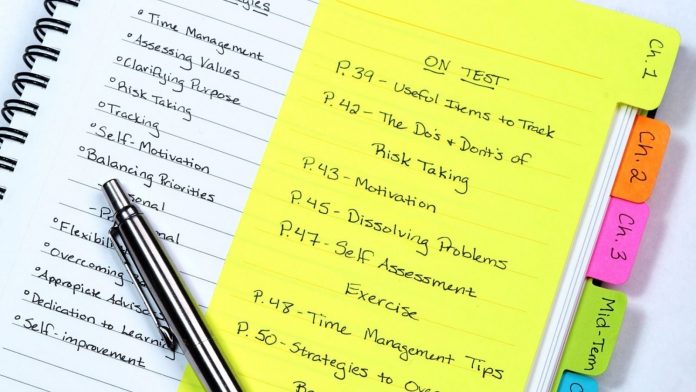 Time Management
Assessing Values
Clarifying Purpose
Risk Taking
Tracking
Self-Motivation
Balancing Priorities
Flexibil
Overcoming
Appropiate Advis
Dedication to Learning
Self-improvement
ON TEST
P.39 - Useful Items to Track
P.42 - The Do's & Dont's of
Risk Taking
P.43 - Motivation
P.45 - Dissolving Problems
P.47 - Self Assessment
Exercise
P.48 - Time Management Tips
P.50 - Strategies to Over
Ch. 1
Ch. 2
Ch. 3
Mid-Term